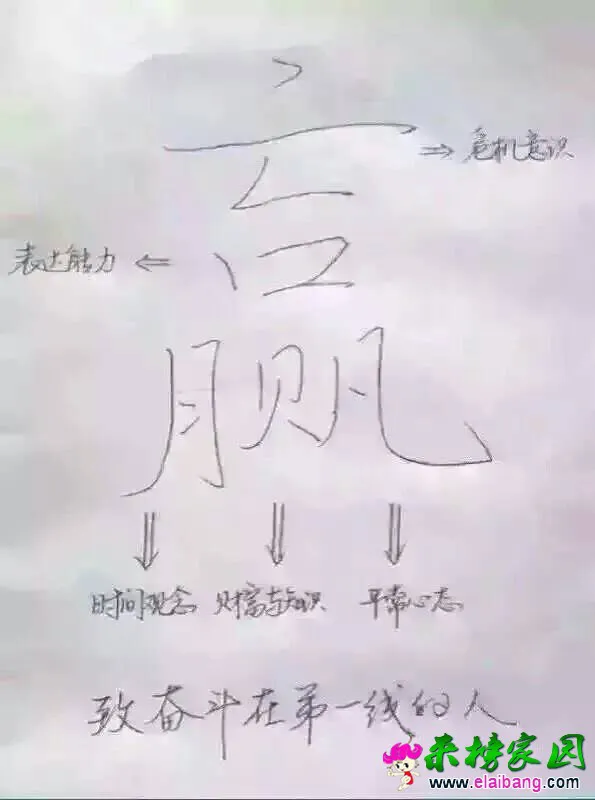 赢
⇒ 危机意识
表达能力 ⇐
时间观念 财富与知识 平常心态
致奋斗在第一线的人
来榜家园
www.elaibang.com